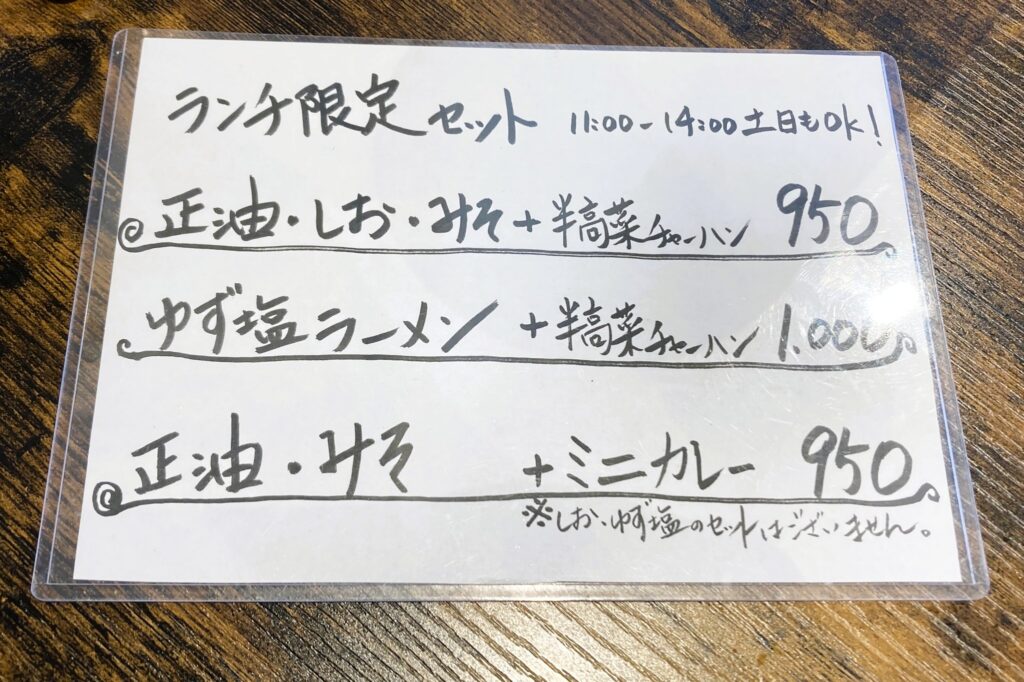 ランチ限定セット 11:00-14:00 土日もOK!
正油・しお・みそ+半高菜チャーハン 950
ゆず塩ラーメン +半高菜チャーハン 1.000
正油・みそ +ミニカレー 950
※しお、ゆず塩のセットはございません。